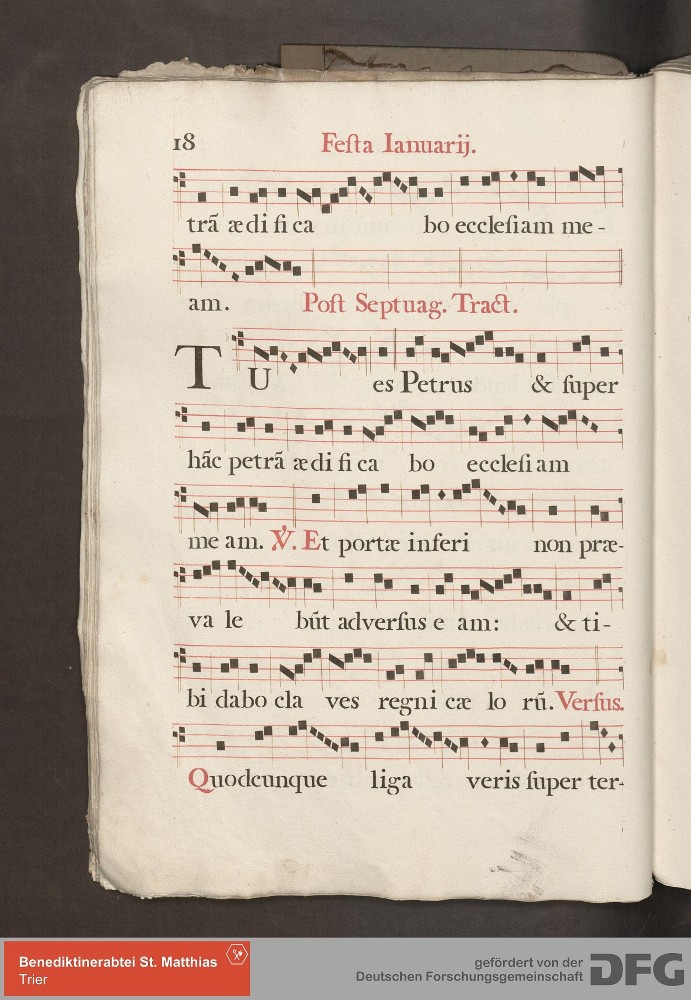 18 Feſta Ianuarij.
trã ædi fi ca bo eccleſiam me-
am. Poſt Septuag. Tract.
TU es Petrus & ſuper
hãc petrã ædi fi ca bo eccleſi am
me am. ℣. Et portæ inferi non præ-
va le bũt adverſus e am: & ti-
bi dabo cla ves regni cæ lo rũ. Verſus.
Quodcunque liga veris ſuper ter-
Benediktinerabtei St. Matthias
Trier
gefördert von der
Deutschen Forschungsgemeinschaft DFG